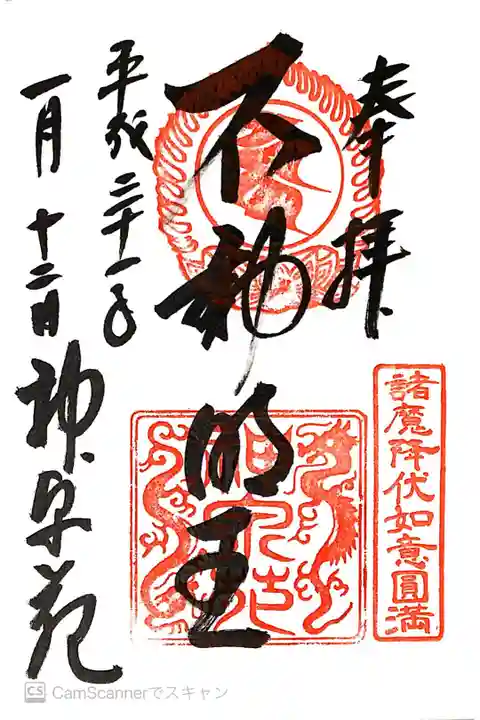 奉拝
諸魔降伏如意圓満
不動明王
平成三十一年
一月十二日
神泉苑
CS CamScannerでスキャン